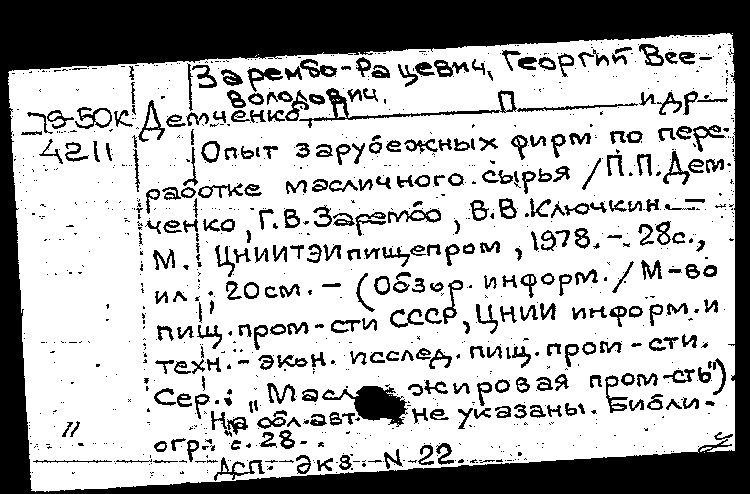 Зарембо-Рацевич, Георгий Все-
володович.
79-50К Демченко, П П и др.
4211 Опыт зарубежных фирм по пере-
работке масличного сырья / П.П. Дем-
ченко, Г.В. Зарембо, В.В. Ключкин. —
М.: ЦНИИТЭИпищепром, 1978. - 28с.,
ил.; 20см. — (Обзор. информ. / М-во
пищ. пром-сти СССР, ЦНИИ информ. и
техн.-экон. исслед. пищ. пром-сти.
Сер.: "Масл жировая пром-сть").
На обл. авт. не указаны. Библи-
11 огр.: с. 28.
Дсп. Экз. N 22.